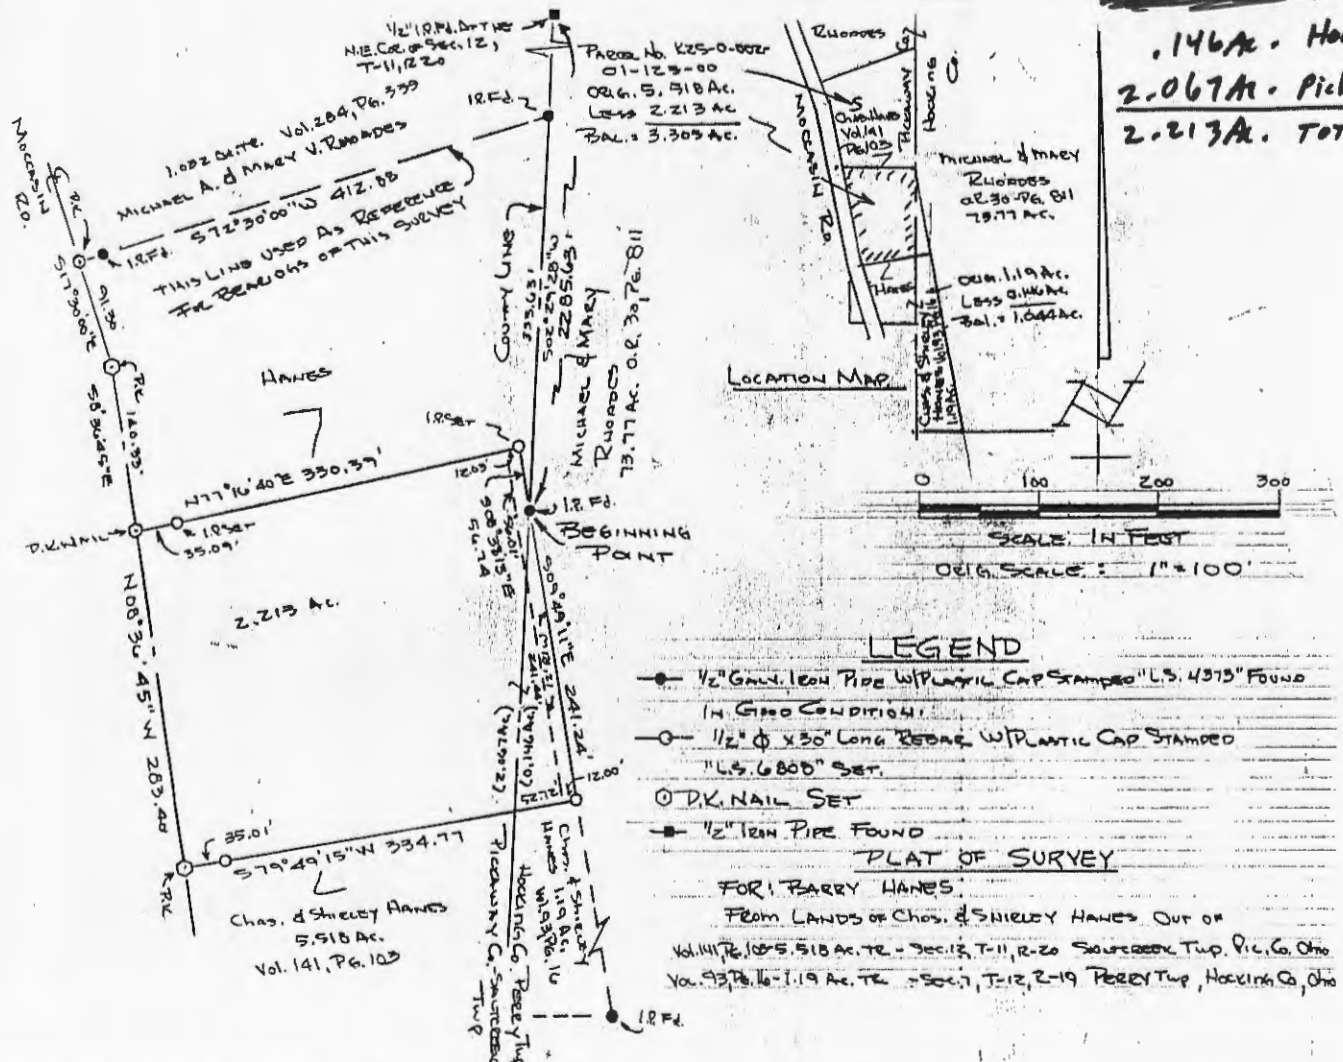 .146 Ac.
2.067 Ac.
2.213 Ac.
1/2" I.P. Fd. At The
N.E. Cor. of Sec. 12,
T-11, R20
Parcel No. K25-0-002-
01-123-00
Orig. 5.518 Ac.
Less 2.213 Ac
Bal. = 3.305 Ac.
I.P. Fd.
Vol. 284, Pg. 339
Michael A. & Mary V. Rhoades
S72°30'00"W 412.88
I.P. Fd.
This Line Used As Reference
For Bearings Of This Survey
Moccasin
Rd.
P.K.
S17°30'00"E 91.30
P.K.
S8°36'45"E 140.33'
Hanes
County Line
S02°29'28"W
2285.63'
Michael & Mary
Rhoades
73.77 Ac. O.R. 30, Pg. 811
I.P. Set
N77°16'40"E 330.39'
12.03'
S08°38'13"E
56.74
I.P. Fd.
Beginning
Point
P.K. Nail
I.P. Set
35.09'
2.213 Ac.
N08°36'45"W 283.40
S09°49'11"E 241.24'
(0.146 Ac.)
(2.067 Ac.)
12.00'
35.01'
S79°49'15"W 334.77
P.K.
Chas. & Shirley Hanes
5.518 Ac.
Vol. 141, Pg. 103
Chas. & Shirley
Hanes 1.19 Ac.
Vol. 93, Pg. 16
Hocking Co. Perry Twp
Pickaway Co. Saltcreek
Twp
I.P. Fd.
Rhoades
Pickaway Co.
Hocking
Co.
Moccasin Rd.
Chas. Hanes
Vol 141
Pg 103
Michael & Mary
Rhoades
O.R. 30-Pg. 811
73.77 Ac.
Hanes
Orig. 1.19 Ac.
Less 0.146 Ac
Bal. = 1.044 Ac.
Chas. & Shirley
Hanes Vol. 93, Pg. 16
1.19 Ac.
Location Map
0 100 200 300
Scale In Feet
Orig. Scale: 1"=100'
LEGEND
1/2" Galv. Iron Pipe W/Plastic Cap Stamped "L.S. 4373" Found
In Good Condition.
1/2" Φ x 30" Long Rebar W/Plastic Cap Stamped
"L.S. 6808" Set.
P.K. Nail Set
1/2" Iron Pipe Found
PLAT OF SURVEY
For: Barry Hanes
From Lands of Chas. & Shirley Hanes Out of
Vol. 141, Pg. 103-5.518 Ac. Tr. - Sec. 12, T-11, R-20 Saltcreek Twp. Pic. Co, Ohio
Vol. 93, Pg. 16-1.19 Ac. Tr. - Sec. 7, T-12, R-19 Perry Twp, Hocking Co, Ohio